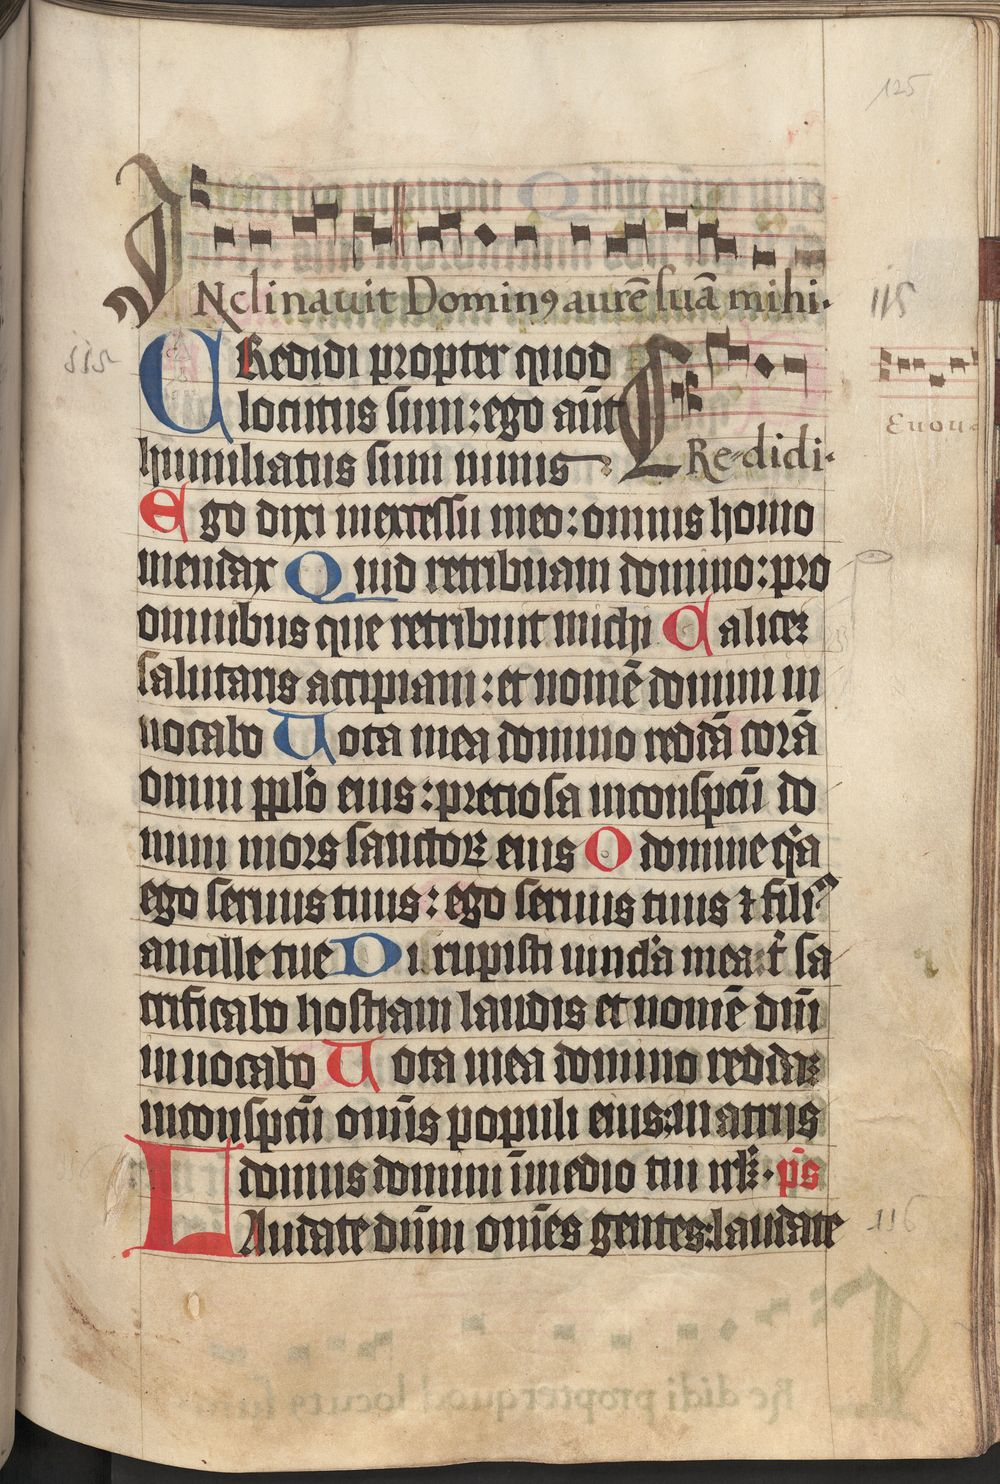 125
INclinauit Dominꝯ aurē suā mihi.
115
CRedidi propter quod
locutus sum: ego aūt
humiliatus sum nimis
CRedidi.
Euoua
Ego dixi in excessu meo: omnis homo
mendax Quid retribuam domino: pro
omnibus que retribuit michi Caliceꝫ
salutaris accipiam: et nomē domini in
uocabo Uota mea domino reddā corā
omni pplo eius: preciosa in conspcū do
mini mors sanctoꝝ eius O domine qa
ego seruus tuus: ego seruus tuus ⁊ filiꝰ
ancille tue Dirupisti uincla mea: t sa
crificabo hostiam laudis et nomē dūi
inuocabo Uota mea domino reddaꝫ
in conspcū om̄is populi eius: in atrijs
domus domini ī medio tui irlꝫ. ps
LAudate dūm om̄es gentes: laudate
116